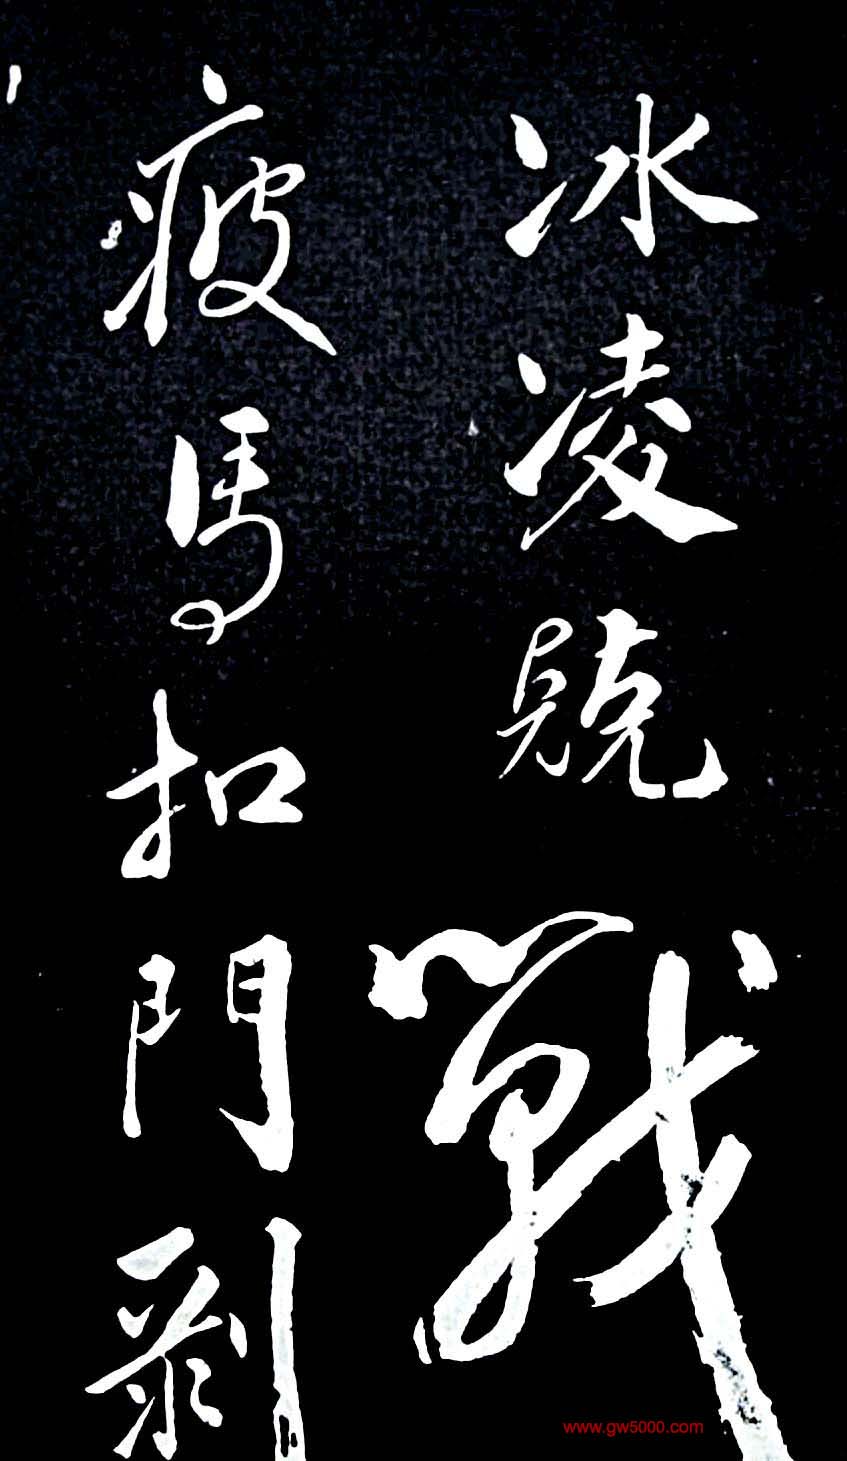 冰凌兢戰
疲馬扣門剥
www.gw5000.com